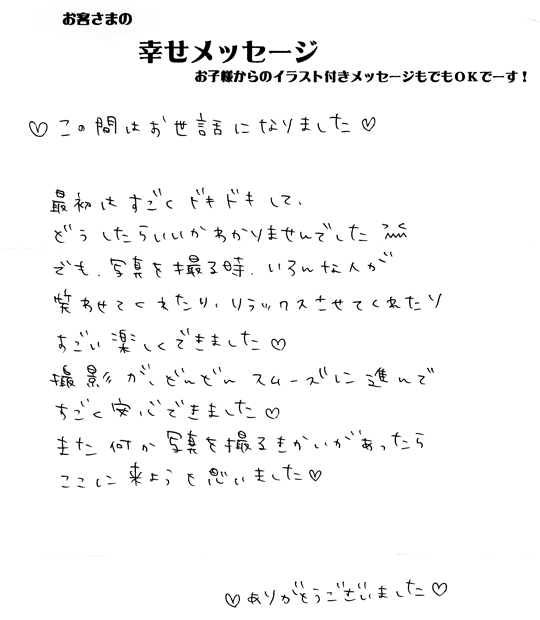 お客さまの
幸せメッセージ
お子様からのイラスト付きメッセージもでもOKでーす!
♡この間はお世話になりました♡
最初はすごくドキドキして、
どうしたらいいかわかりませんでした
でも、写真を撮る時、いろんな人が
笑わせてくれたり、リラックスさせてくれたり
すごい楽しくできました♡
撮影が、どんどんスムーズに進んで
すごく安心できました♡
また何か写真を撮るきかいがあったら
ここに来ようと思いました♡
♡ありがとうございました♡